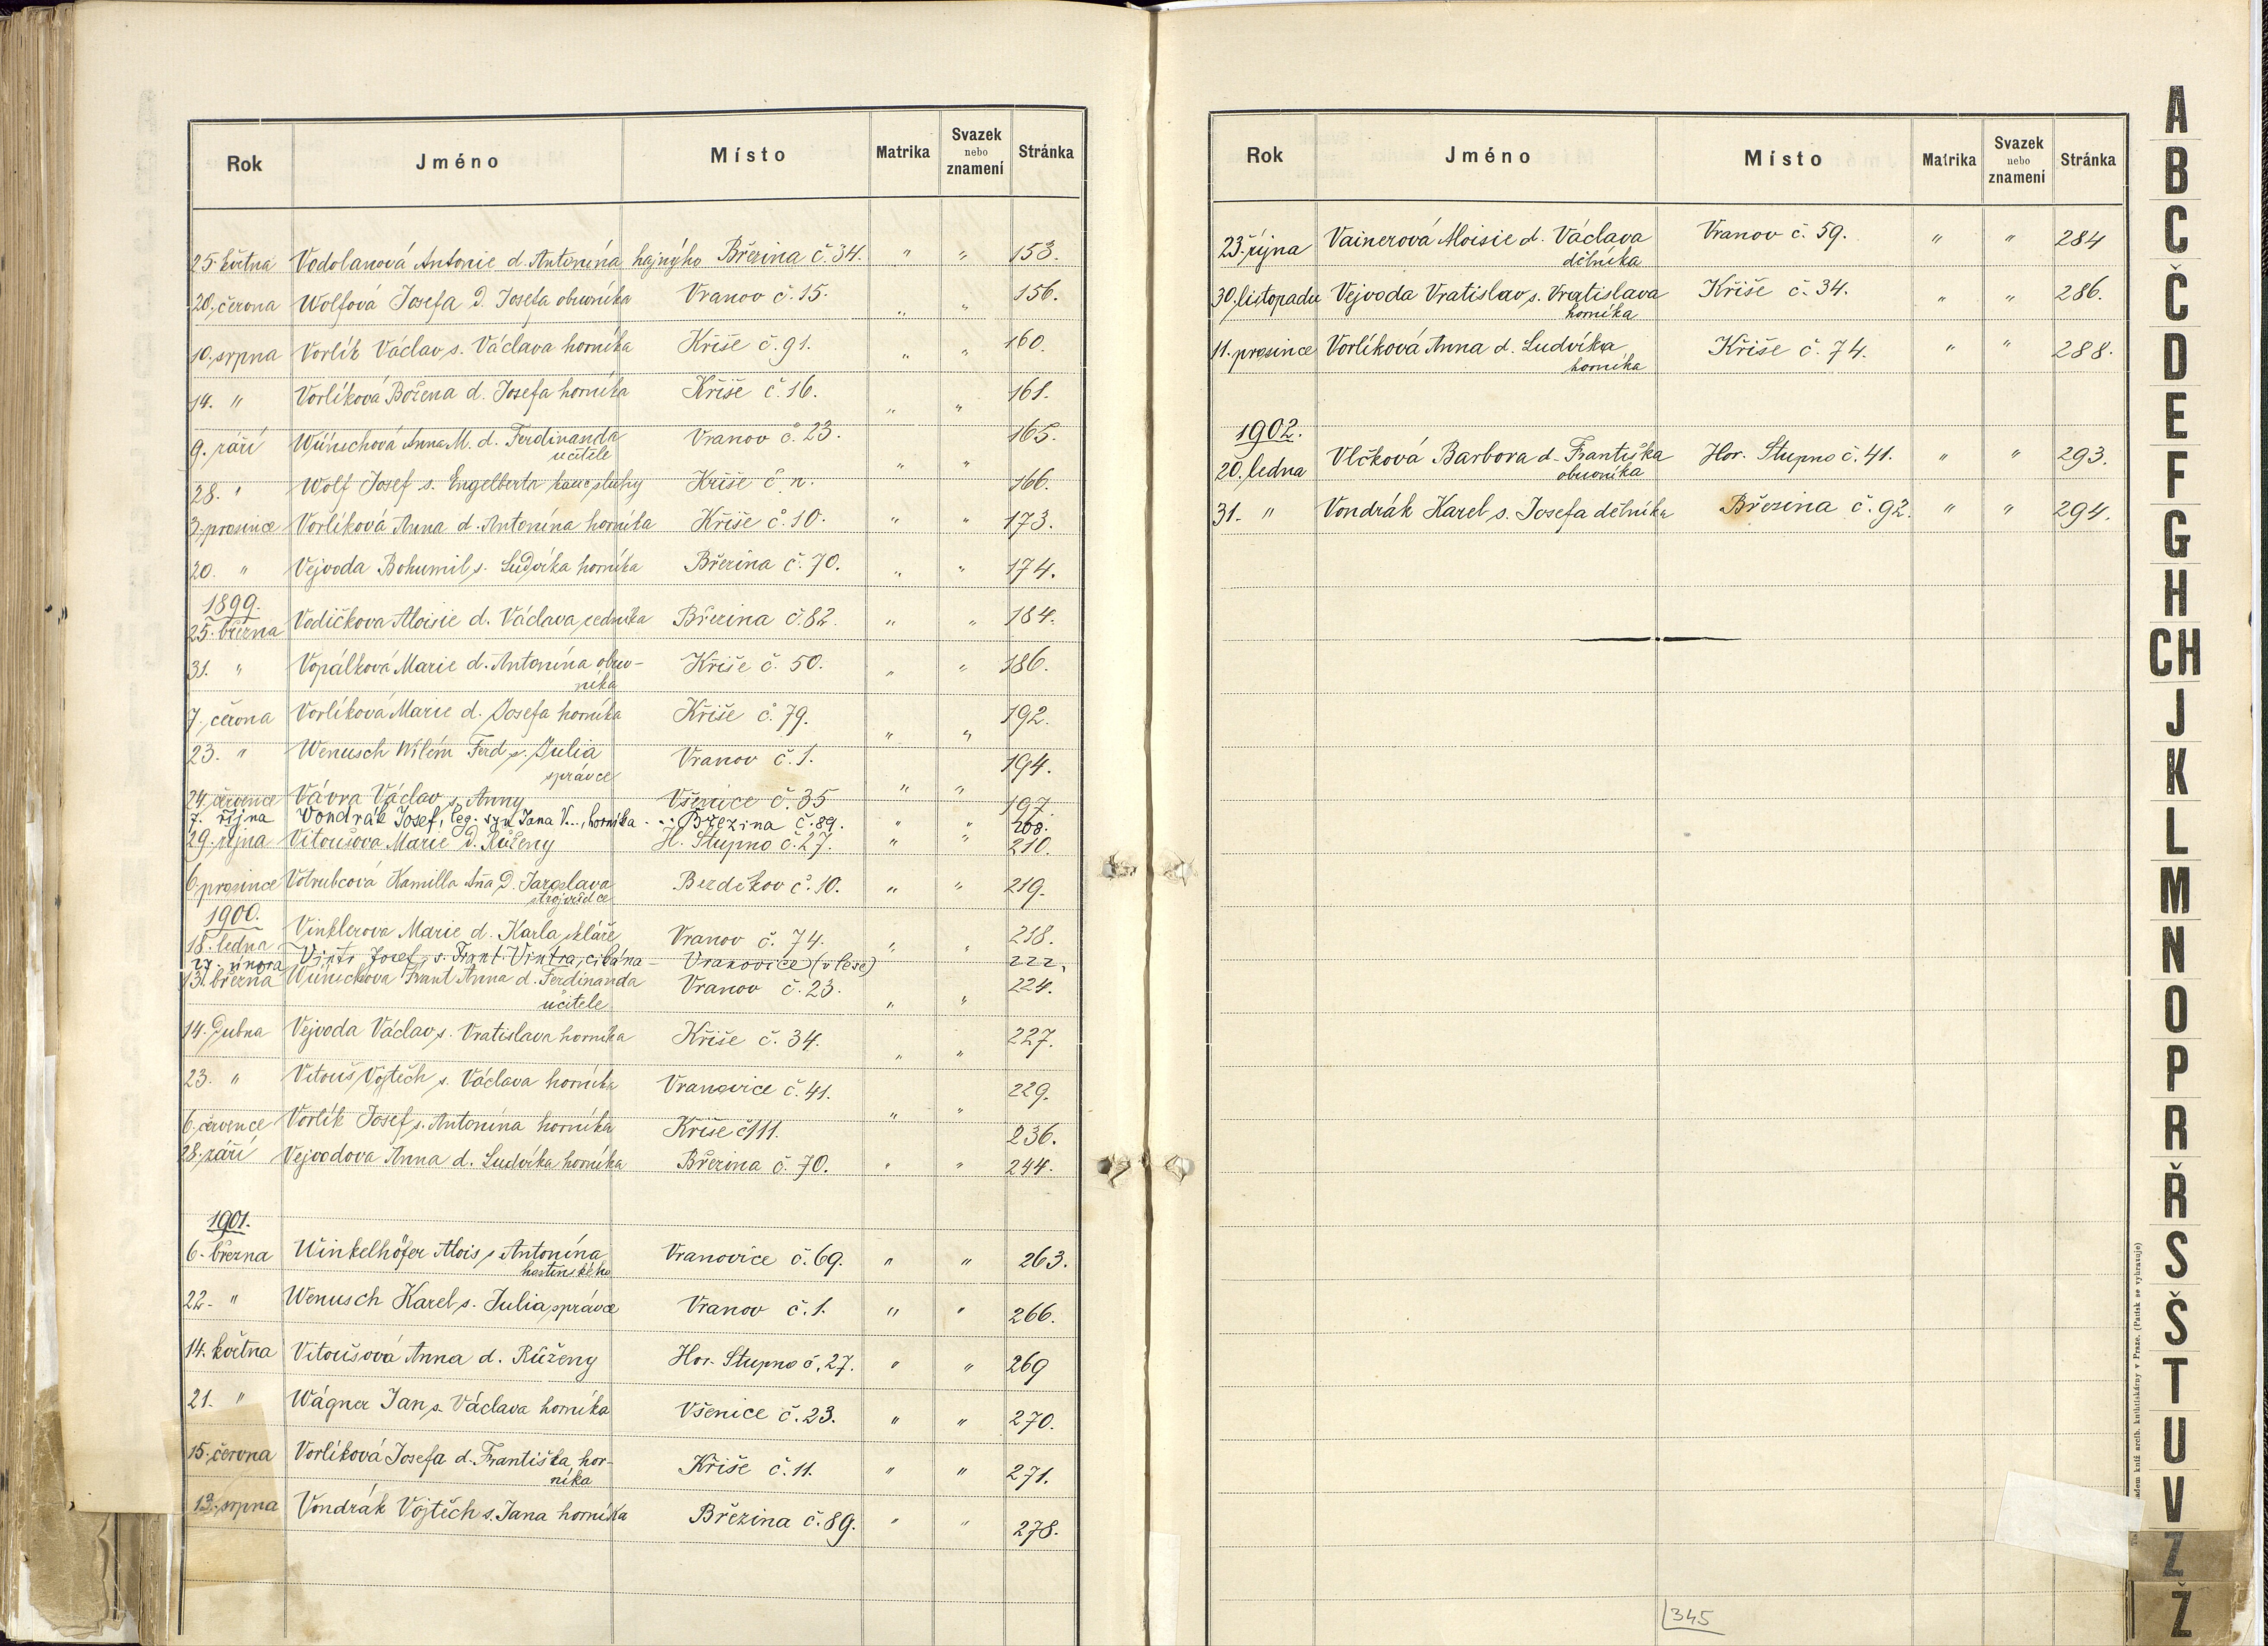 Rok Jméno Místo Matrika Svazek nebo znamení Stránka
25. května Vodolanová Antonie d. Antonína hajného Březina č. 34. " " 153.
20. června Wolfová Josefa d. Josefa obuvníka Vranov č. 15. " " 156.
10. srpna Vorlík Václav s. Václava horníka Kříše č. 91. " " 160.
14. " Vorlíková Božena d. Josefa horníka Kříše č. 16. " " 161.
9. září Wünschová Anna M. d. Ferdinanda Vranov č. 23. " " 165.
učitele
28. " Wolf Josef s. Engelberta kanc. sluhy Kříše č. n. 166.
3. prosince Vorlíková Anna d. Antonína horníka Kříše č. 10. " " 173.
20. " Vejvoda Bohumil s. Ludvíka horníka Březina č. 70. " " 174.
1899.
25. března Vodičkova Aloisie d. Václava zedníka Březina č. 82. " " 184.
31. " Vopálková Marie d. Antonína obuv- Kříše č. 50. " " 186.
níka
7. června Vorlíková Marie d. Josefa horníka Kříše č. 79. " " 192.
23. " Wenusch Vilém Ferd s. Julia Vranov č. 1. " " 194.
správce
24. července Vávra Václav s. Anny Všenice č. 35 197.
7. října Vondrák Josef, leg. syn Jana V..., horníka Březina č. 89. " " 208.
29. října Vitoušova Marie d. Růženy H. Stupno č. 27. " " 210.
6. prosince Votrubcová Kamilla Aňa d. Jaroslava Bezděkov č. 10. " " 219.
strojvůdce
1900.
18. ledna Vinklerova Marie d. Karla skláře Vranov č. 74. " " 218.
27. února Vintr Josef, s. Frant. Vintra, cikána – Vranovice (v lese) 222.
13. března Wünschova Frant Anna d. Ferdinanda Vranov č. 23. " " 224.
učitele
14. dubna Vejvoda Václav s. Vratislava horníka Kříše č. 34. " " 227.
23. " Vitouš Vojtěch s. Václava horníka Vranovice č. 41. " " 229.
6. července Vorlík Josef s. Antonína horníka Kříše č 111. 236.
28. září Vejvodova Anna d. Ludvíka horníka Březina č. 70. " " 244.
1901.
6. března Winkelhöfer Alois s. Antonína Vranovice č. 69. " " 263.
hostinského
22. " Wenusch Karel s. Julia správce Vranov č. 1. " " 266.
14. května Vitoušová Anna d. Růženy Hor. Stupno č. 27. " " 269
21. " Wágner Jan s. Václava horníka Všenice č. 23. " " 270.
15. června Vorlíková Josefa d. Františka hor- Kříše č. 11. " " 271.
níka
13. srpna Vondrák Vojtěch s. Jana horníka Březina č. 89. " " 278.
Rok Jméno Místo Matrika Svazek nebo znamení Stránka
23. října Vainerová Aloisie d. Václava Vranov č. 59. " " 284
dělníka
30. listopadu Vejvoda Vratislav s. Vratislava Kříše č. 34. " " 286.
horníka
11. prosince Vorlíková Anna d. Ludvíka Kříše č. 74. " " 288.
horníka
1902.
20. ledna Vlčková Barbora d. Františka Hor. Stupno č. 41. " " 293.
obuvníka
31. " Vondrák Karel s. Josefa dělníka Březina č. 92. " " 294.
345
A
B
C
Č
D
E
F
G
H
CH
J
K
L
M
N
O
P
R
Ř
S
Š
T
U
V
Z
Ž
kníž. arcib. knihtiskárny v Praze. (Patisk se vyhrazuje)